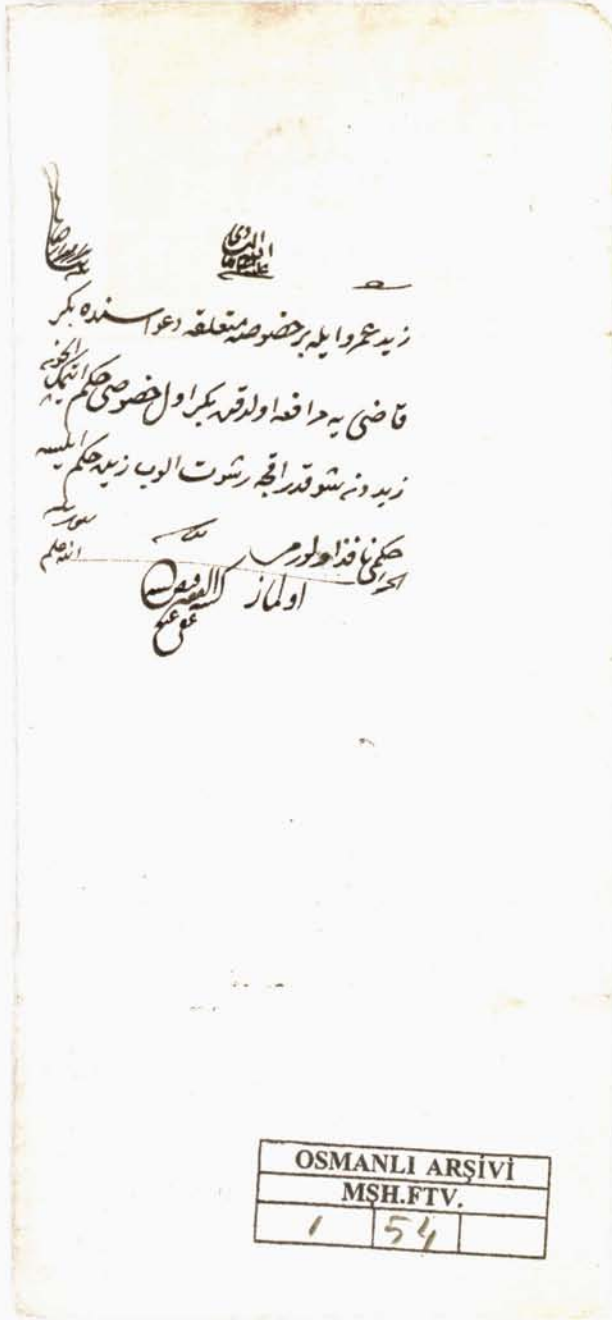 زيد عمرو ايله بر خصوصه متعلقه دعواسنده بكر
قاضى يه مرافعه اولدقده بكر اول خصوصى حكم ايتمك ايچون
زيددن شو قدر اقچه رشوت الوب زيده حكم ايلسه
حكمى نافذ اولورمى
الجواب الله اعلم
اولماز
كتبه الفقير
عفى عنه
OSMANLI ARŞİVİ
MŞH.FTV.
1 54